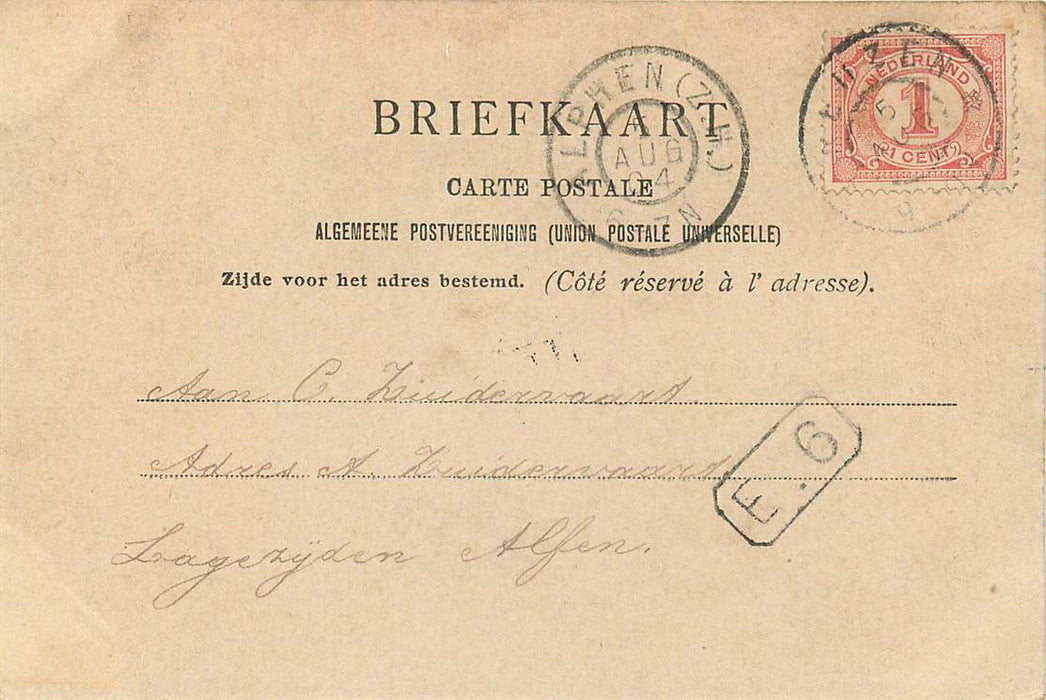 NEDERLAND
1
1 CENT
ALPHEN (Z.H.)
AUG
04
6-7N
BRIEFKAART
CARTE POSTALE
ALGEMEENE POSTVEREENIGING (UNION POSTALE UNIVERSELLE)
Zijde voor het adres bestemd. (Côté réservé à l' adresse).
Aan C. Zuidervaart.
Adres A. Zuidervaart
Lagezijden Alfen.
E. 6